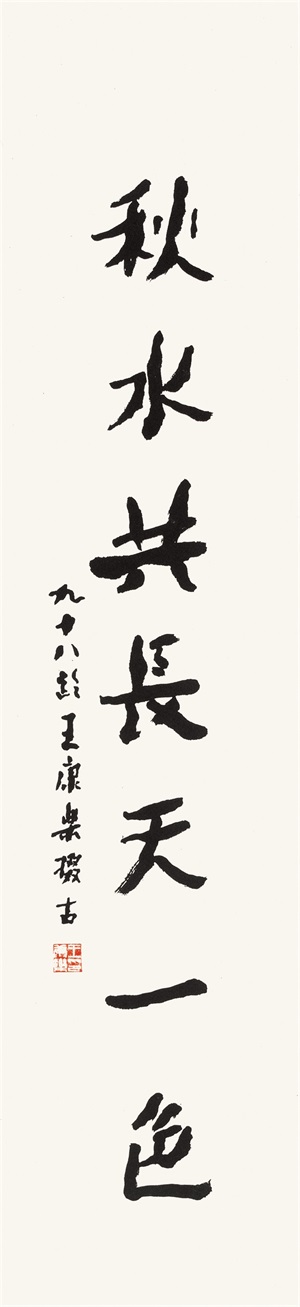 秋水共長天一色
九十八齡王康樂撥古